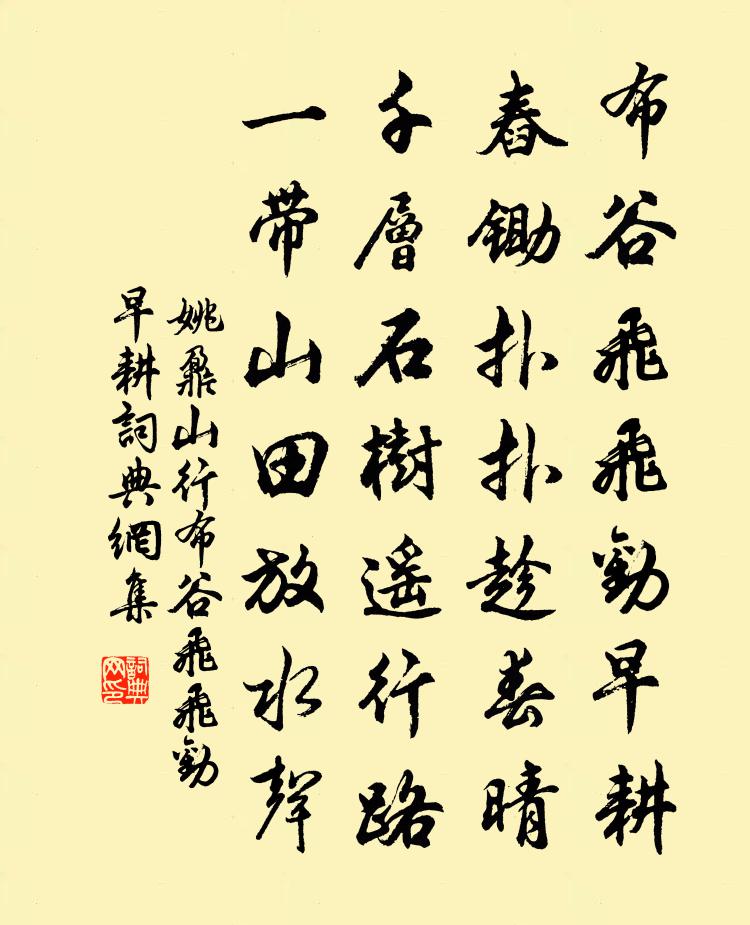 布谷飛飛勸早耕
舂鋤扑扑趁春晴
千層石樹遥行路
一带山田放水聲
姚鼐山行布谷飛飛勸
早耕詞典網集
詞典网印